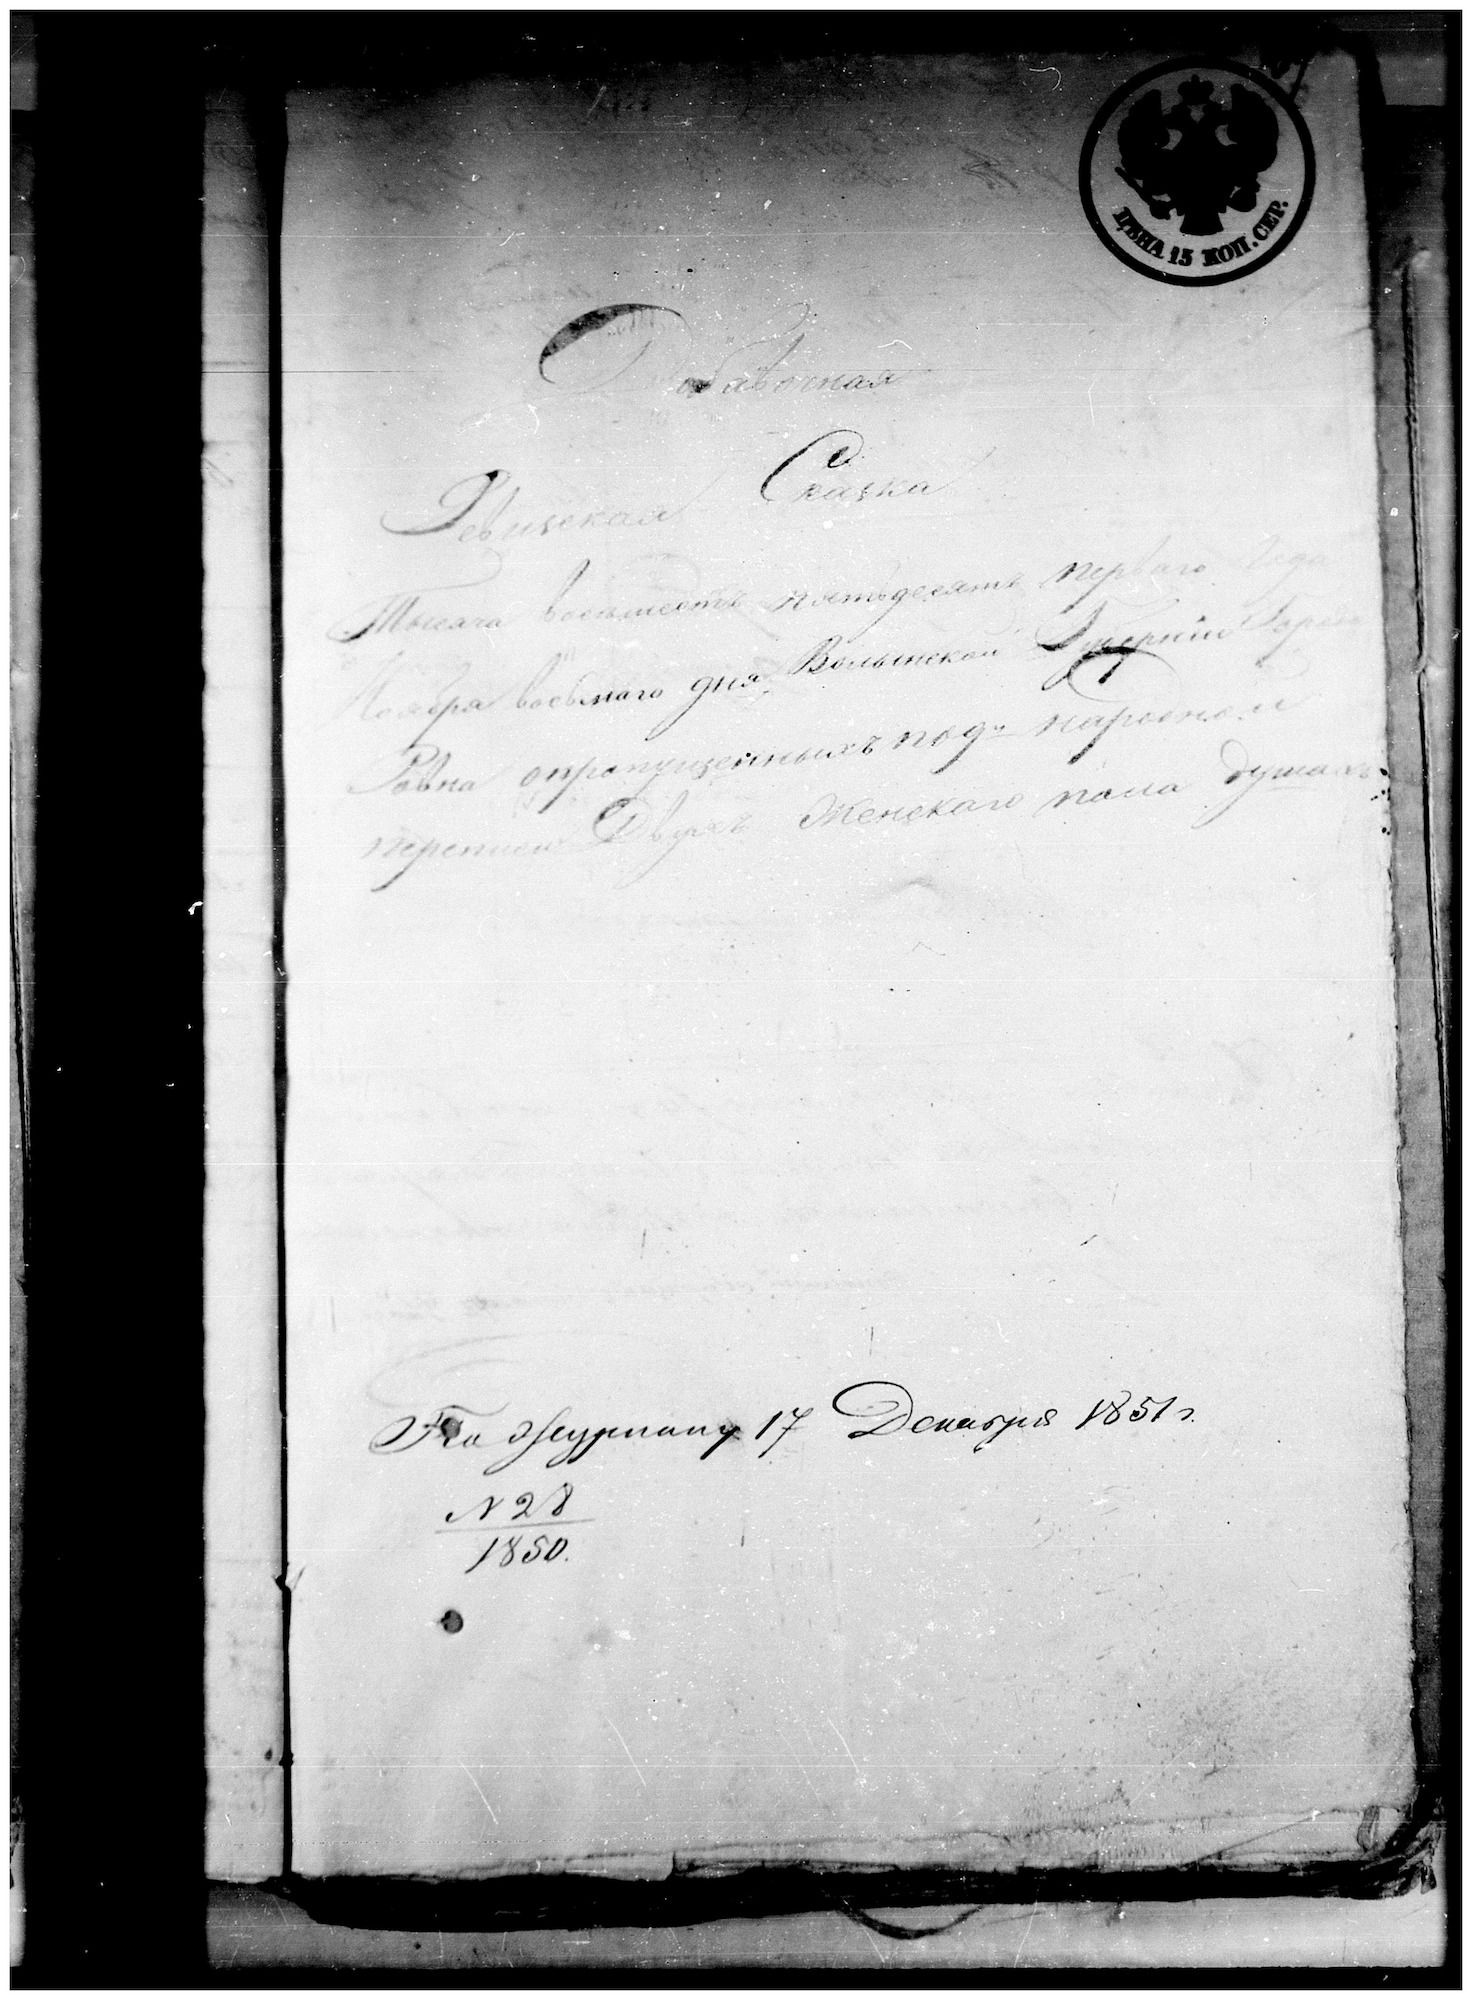 ЦѢНА 15 КОП. СЕР.
Добавочная
Ревизская Сказка
Тысяча восемьсотъ пятьдесятъ перваго Года
Ноября восьмаго дня, Волынской Губерніи
Ровна опропущенныхъ под народной
переписи Двухъ Женскаго пола душахъ.
По Журналу 17 Декабря 1851 г.
N 28
1850.